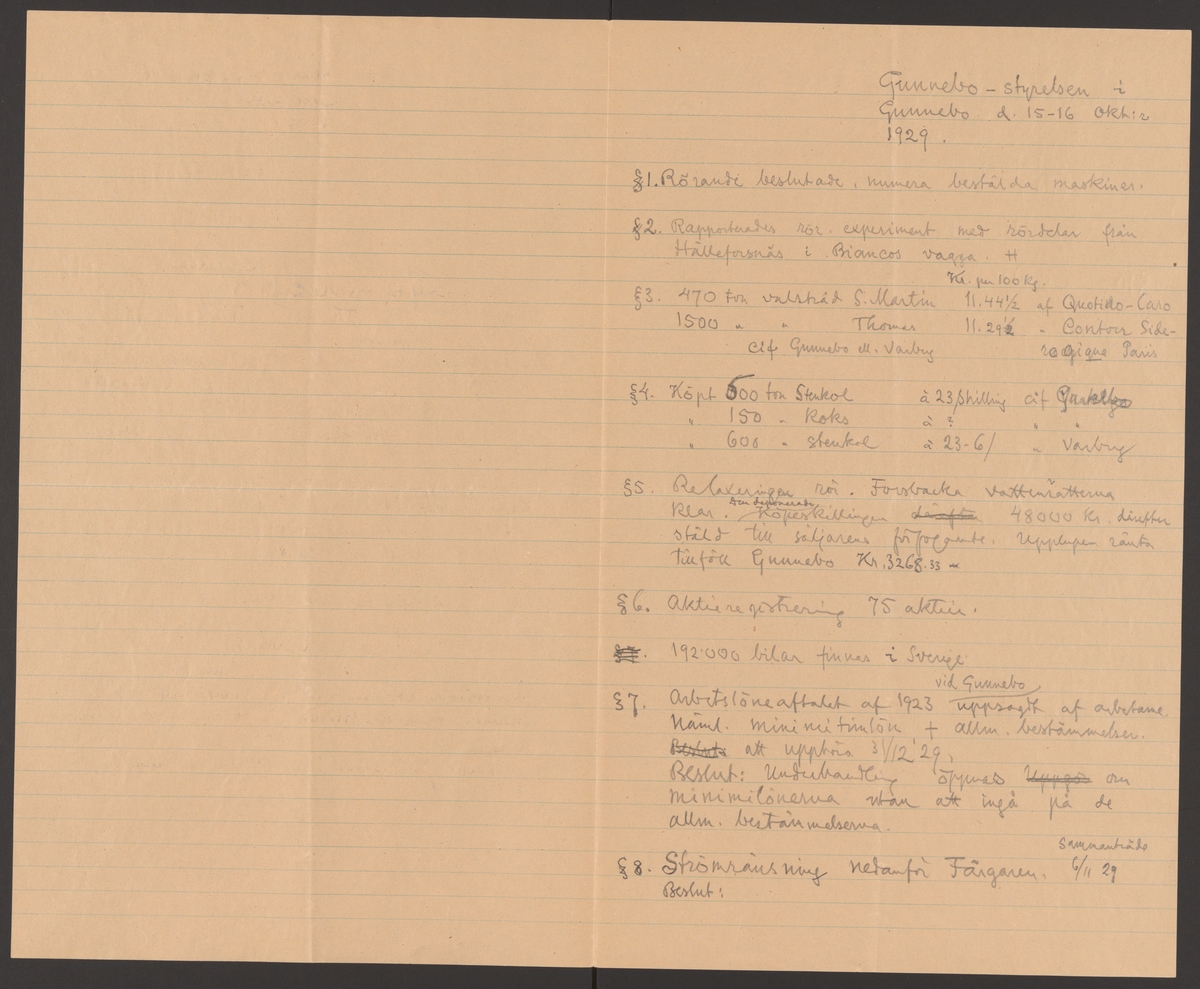 Gunnebo-styrelsen i
Gunnebo d. 15-16 Okt:r
1929.
§1. Rörande beslutade, numera bestälda maskiner.
§2. Rapporterades rör. experiment med rördelar från
Hälleforsnäs i Biancos vagga. #
Kr. per 100 kg.
§3. 470 ton valstråd S. Martin 11.44½ af
1500 " " Thomas 11.29½ " Contoir Side-
cif Gunnebo ell. Varbrg Paris
§4. Köpt 600 ton Stenkol à 23 shilling cif
" 150 " Koks à ? " "
" 600 " stenkol à 23-6/ " Varbrg
§5. Relaxeringen rör. Forsbacka vattenrätterna
klar. Den deponerade Köpeskillingen 48000 Kr. därefter
stäld till säljarens förfogande. Upplupen ränta
tillföll Gunnebo Kr. 3268.33
§6. Aktieregistrering 75 aktier.
192.000 bilar finnas i Sverige
vid Gunnebo
§7. Arbetslöneaftalet af 1923 uppsagdt af arbetarne.
Näml. minimitimlön + allm. bestämmelser.
att upphöra 31/12 '29.
Beslut: Underhandling öppnas om
minimilönerna utan att ingå på de
allm. bestämmelserna.
Sammanträde
§8. Strömränsning nedanför Färgaren. 6/11 29
Beslut: